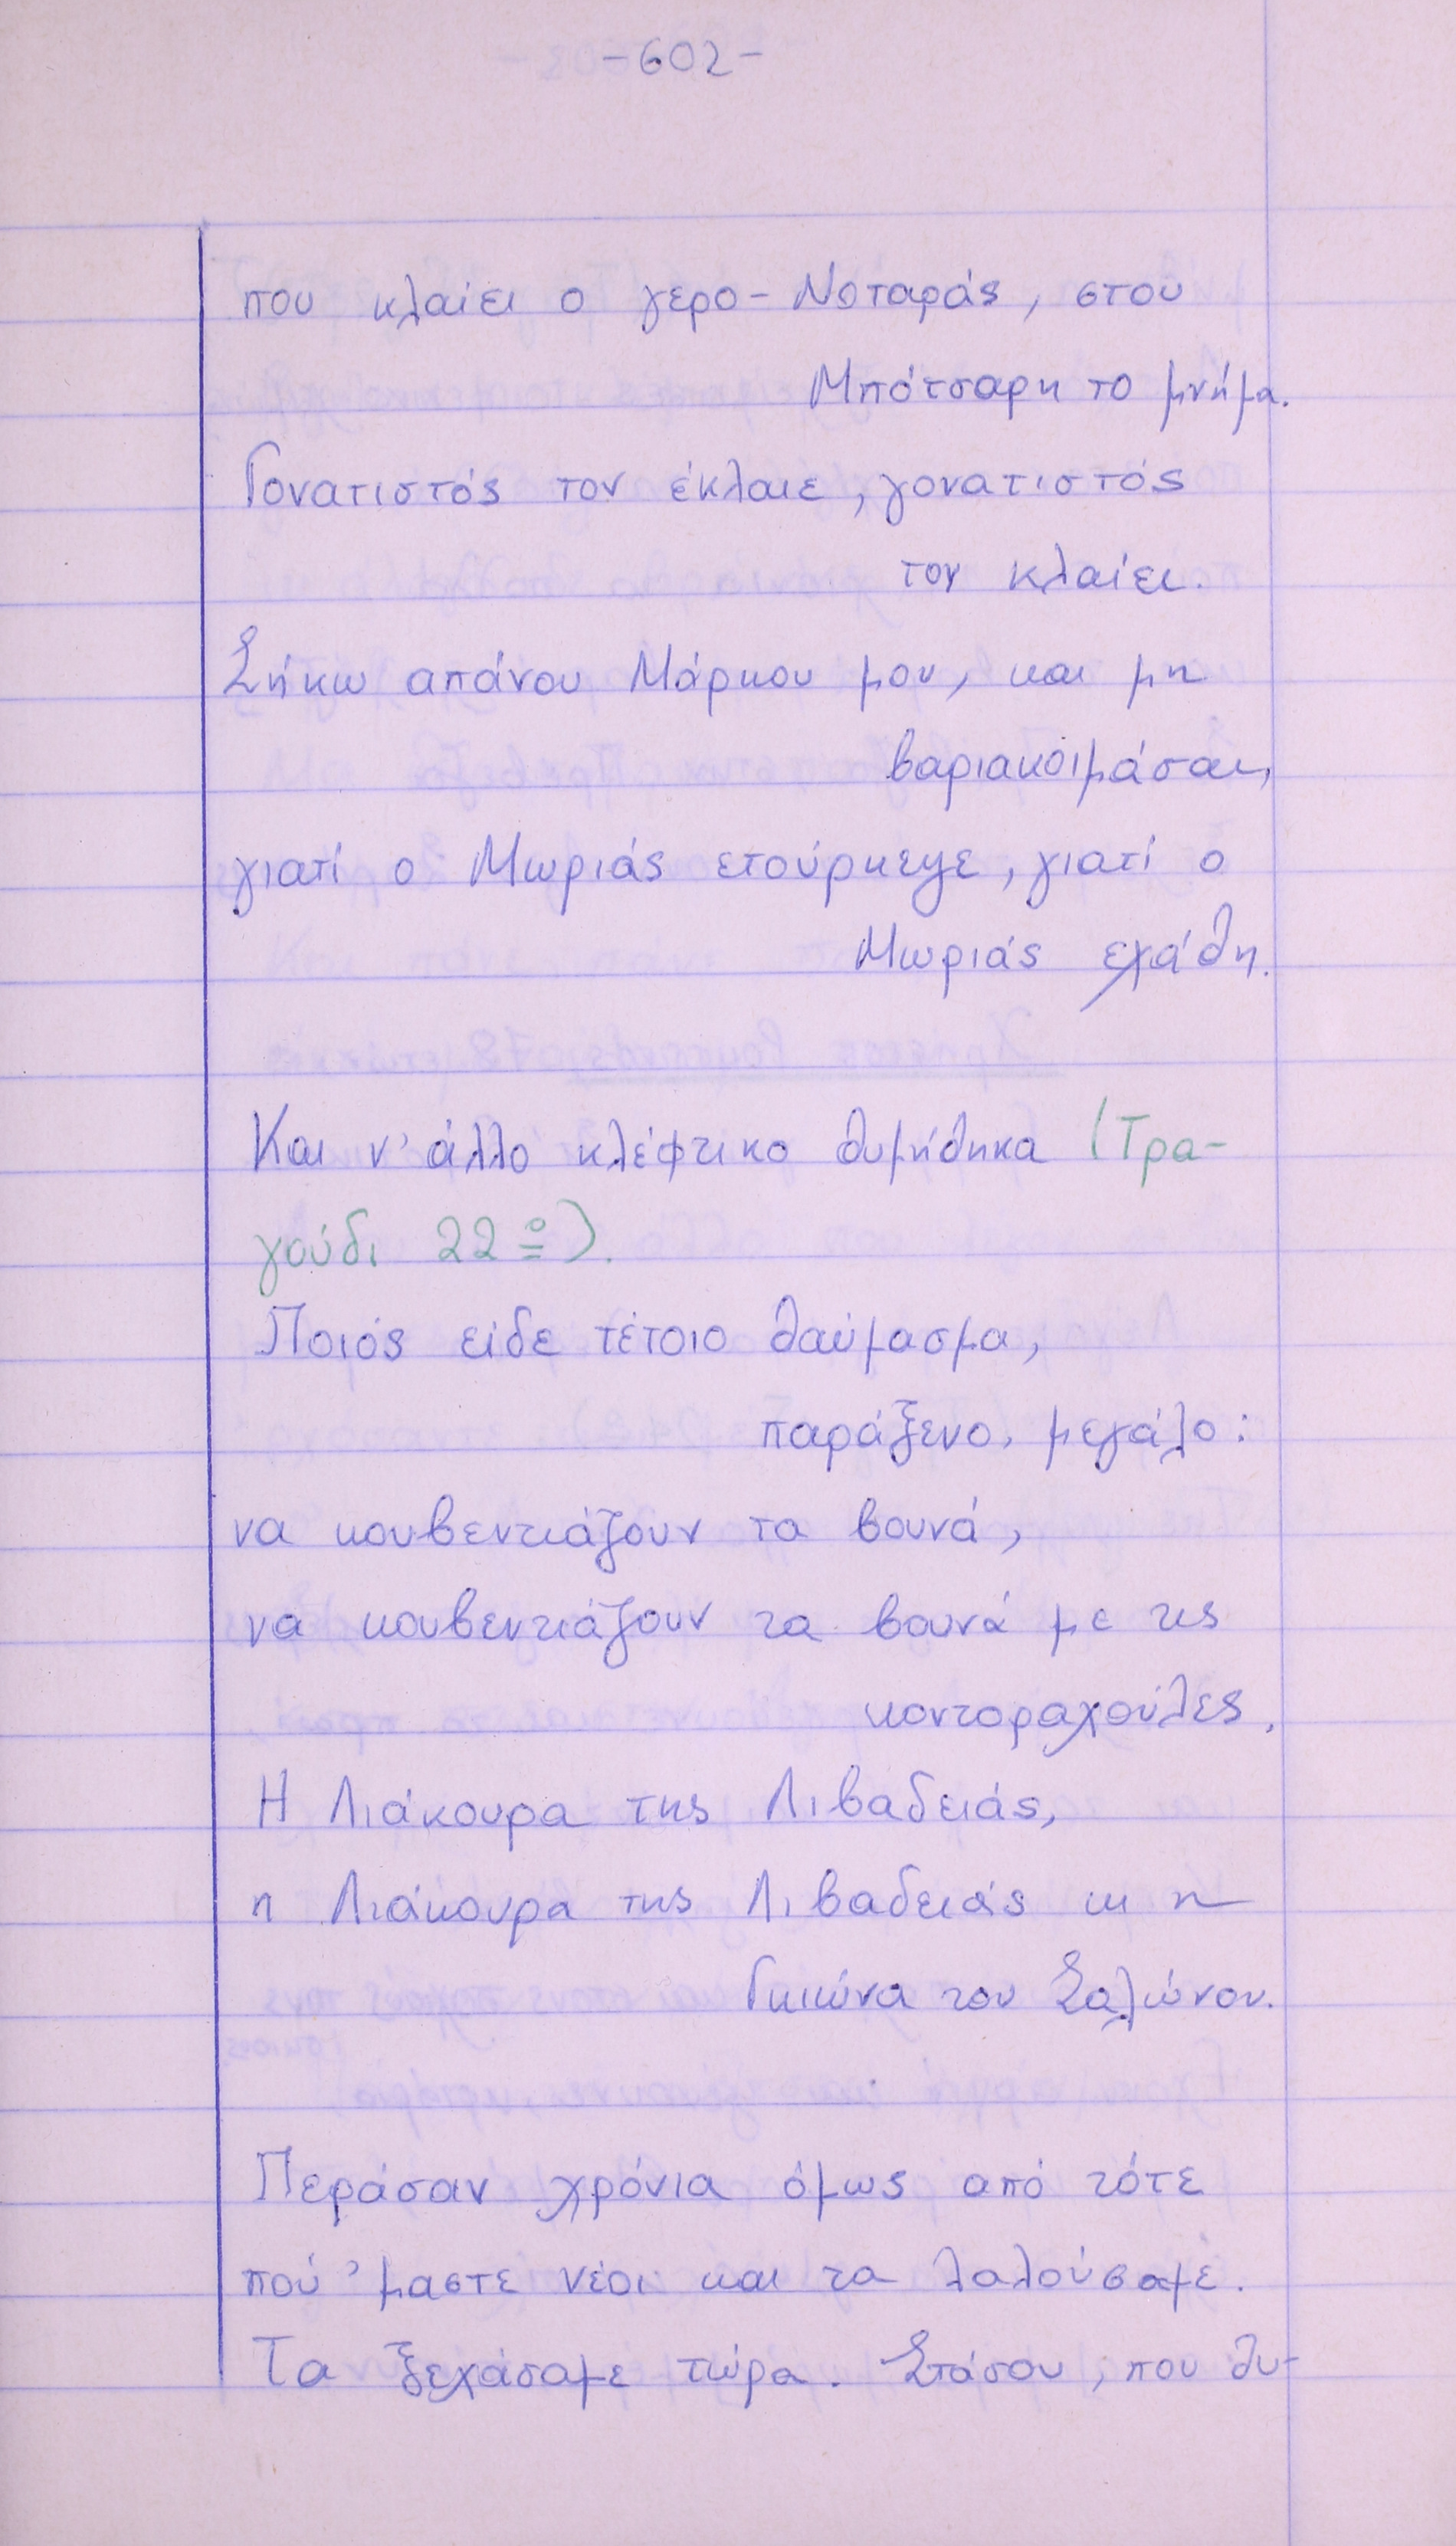 -602-
που κλαίει ο γερο-Νοταράς, στου
Μπότσαρη το μνήμα.
Γονατιστός τον έκλαιε, γονατιστός
τον κλαίει.
Σήκω απάνου Μάρκου μου, και μη
βαριακοιμάσαι,
γιατί ο Μωριάς ετούρκεψε, γιατί ο
Μωριάς εχάθη.
Και ν' άλλο κλέφτικο θυμήθηκα (Τρα-
γούδι 22º).
Ποιός είδε τέτοιο θαύμασμα,
παράξενο, μεγάλο:
να κουβεντιάζουν τα βουνά,
να κουβεντιάζουν τα βουνά με τις
κοντοραχούλες.
Η Λιάκουρα της Λιβαδειάς,
η Λιάκουρα της Λιβαδειάς κι η
Γκιώνα του Σαλώνου.
Περάσαν χρόνια όμως από τότε
πού 'μαστε νέοι και τα λαλούσαμε.
Τα ξεχάσαμε τώρα. Στάσου, που θυ-